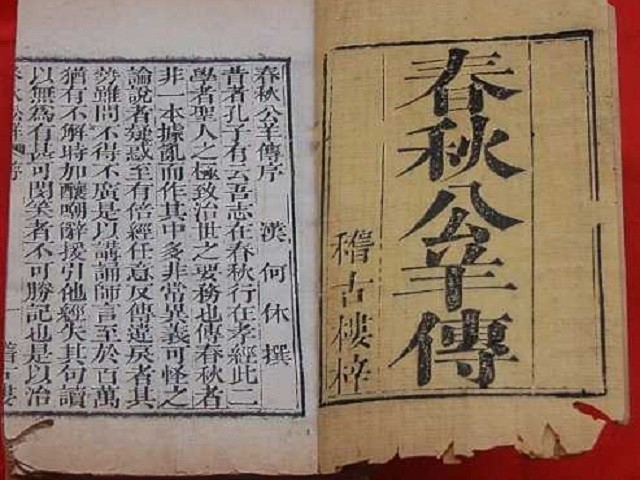 春秋公羊傳
稽古樓梓
春秋公羊傳序 漢何休撰
昔者孔子有云吾志在春秋行在孝經此二
學者聖人之極致治世之要務也傳春秋者
非一本據亂而作其中多非常異義可怪之
論說者疑惑至有倍經任意反傳違戾者其
勢雖問不得不廣是以講誦師言至於百萬
猶有不解時加釀嘲辭援引他經失其句讀
以無為有甚可閔笑者不可勝記也是以治